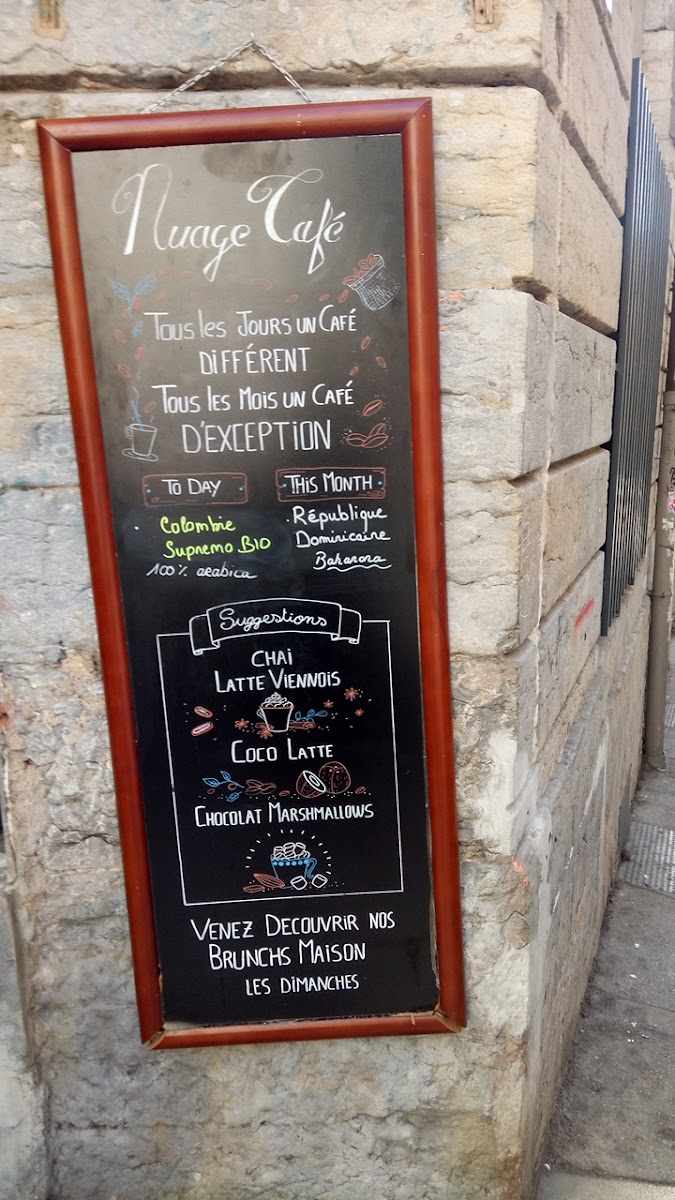 Nuage Café
Tous les Jours un Café
DiFFÉRENT
Tous les Mois un Café
D'EXCEPTION
TO DAY
THIS MONTH
Colombie
Supremo BIO
100% arabica
République
Dominicaine
Bahanora
Suggestions
CHAi
LATTE VIENNOiS
COCO LATTE
CHOCOLAT MARSHMALLOWS
VENEZ DECOUVRIR NOS
BRUNCHS MAISON
LES DIMANCHES